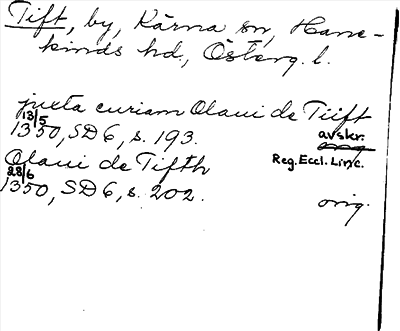 Tift, by, Kärna sn, Hane-
kinds hd., Österg. l.
juxta curiam Olaui de Tiift
13/5 1350, SD 6, s. 193. avskr.
Reg. Eccl. Linc.
Olaui de Tifth
28/6 1350, SD 6, s. 202. orig.